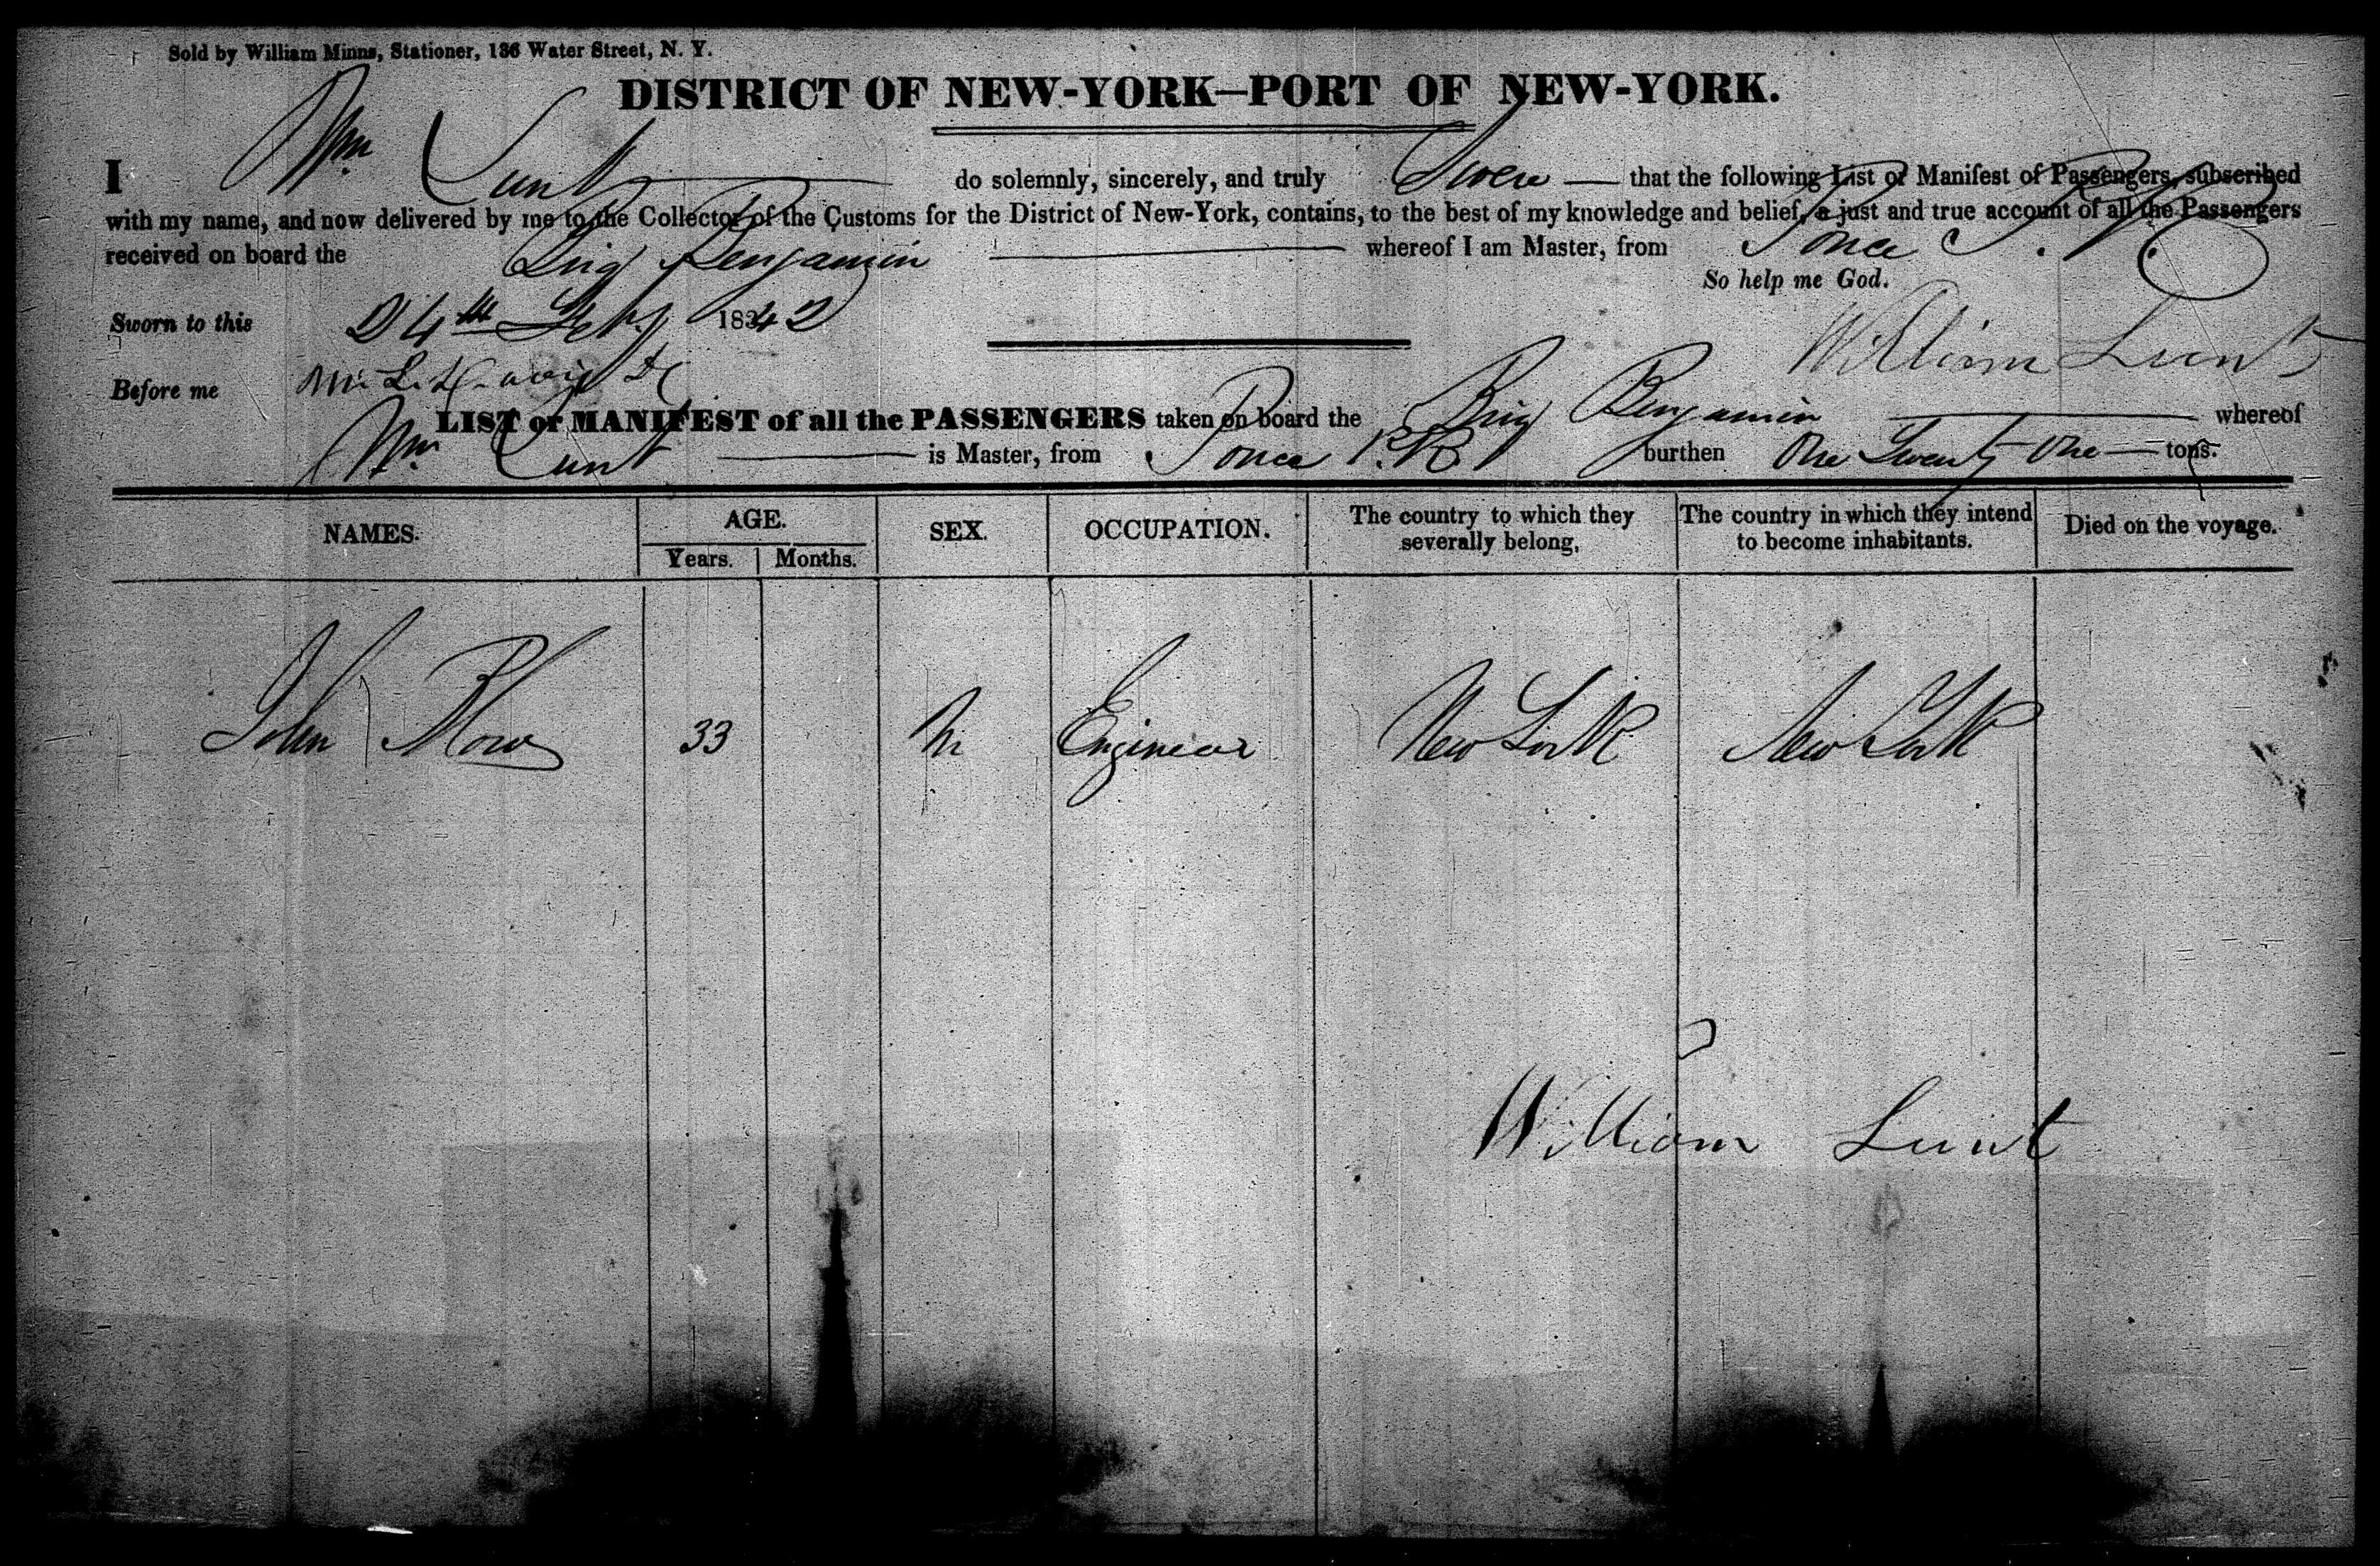 Sold by William Minns, Stationer, 136 Water Street, N. Y.
DISTRICT OF NEW-YORK—PORT OF NEW-YORK.
I Wm Lunt do solemnly, sincerely, and truly Swear — that the following List or Manifest of Passengers, subscribed
with my name, and now delivered by me to the Collector of the Customs for the District of New-York, contains, to the best of my knowledge and belief, a just and true account of all the Passengers
received on board the Brig Benjamin whereof I am Master, from Ponce P. R.
So help me God.
Sworn to this 24th Feby 1842
William Lunt
Before me
LIST or MANIFEST of all the PASSENGERS taken on board the Brig Benjamin whereof
Wm Lunt is Master, from Ponce P.R. burthen One Twenty One — tons.
NAMES. AGE. SEX. OCCUPATION. The country to which they severally belong. The country in which they intend to become inhabitants. Died on the voyage.
Years. Months.
John 33 M Engineer New York New York
William Lunt